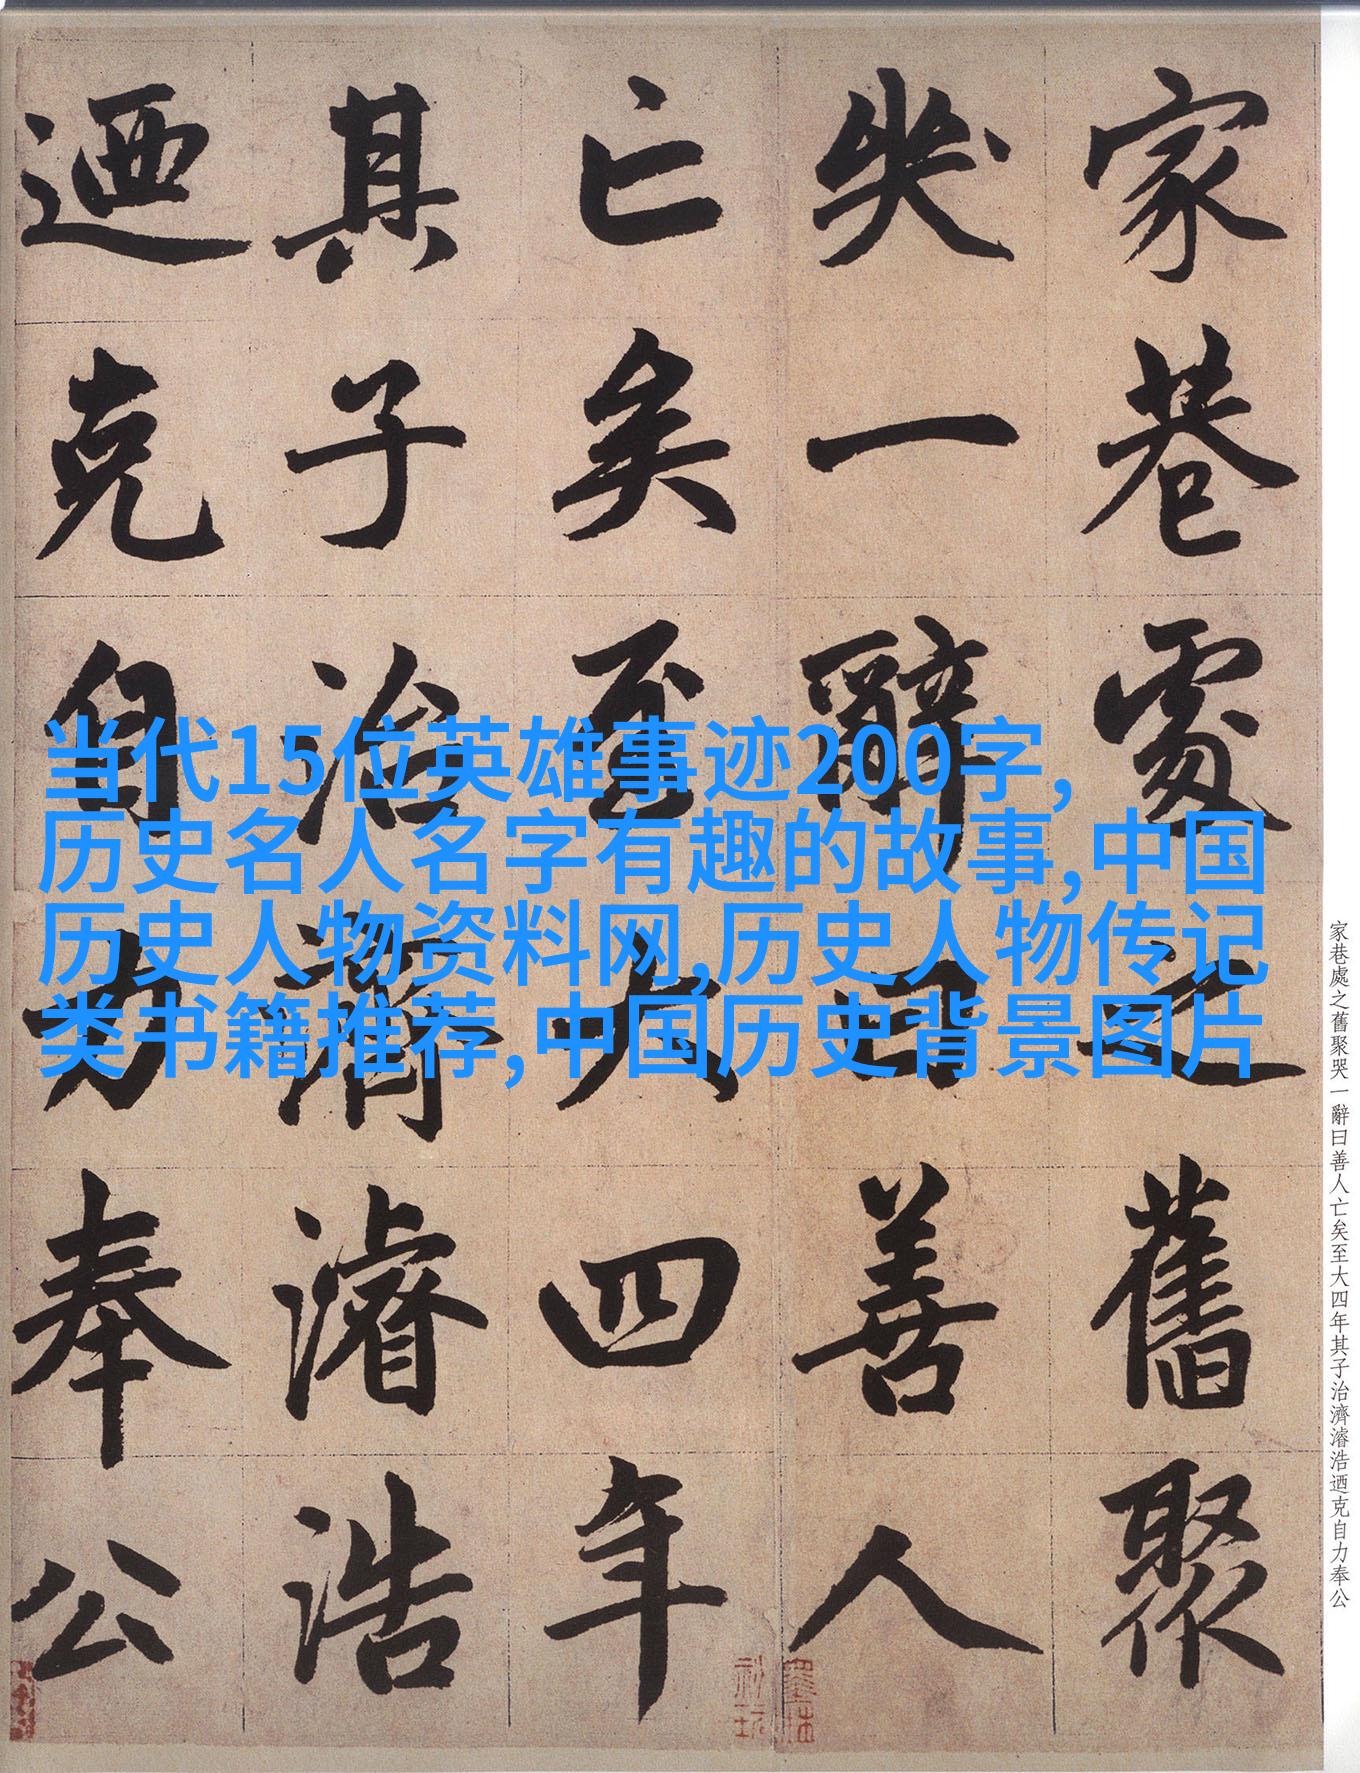 家巷處之舊聚
哭一辭曰善人
亡矣至大四年
其子治濟濬浩
迺克自力奉公
当代15位英雄事迹200字,
历史名人名字有趣的故事,中国
历史人物资料网,历史人物传记
类书籍推荐,中国历史背景图片
家巷處之舊聚哭一辭曰善人亡矣至大四年其子治濟濬浩迺克自力奉公
墨林
秘玩